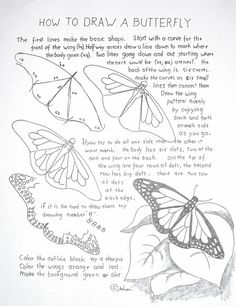 HOW TO DRAW A BUTTERFLY
The first lines make the basic shape. Start with a curve for the
front of the wing (1a) Half way across draw a line down to mark where
the body goes (2a). Two lines going down and out starting where
the neck would be (3a, 3b) across! The
back of the wing is six curves.
make the curves or six small
lines then connect them
Draw the wing
pattern evenly
by copying
back and forth
on each side
as you go.
If you try to do all one side then the other it
wont match. the body has six dots, two at the
neck and four on the back. on the tip of
the wing are four rows of dots, the second
row has big dots. there are two row
of dots
at the
back edge.
if it is too hard to draw them try
drawing number "8"
Color the outline black, try a sharpie
Color the wings orange and red.
Make the background green or blue